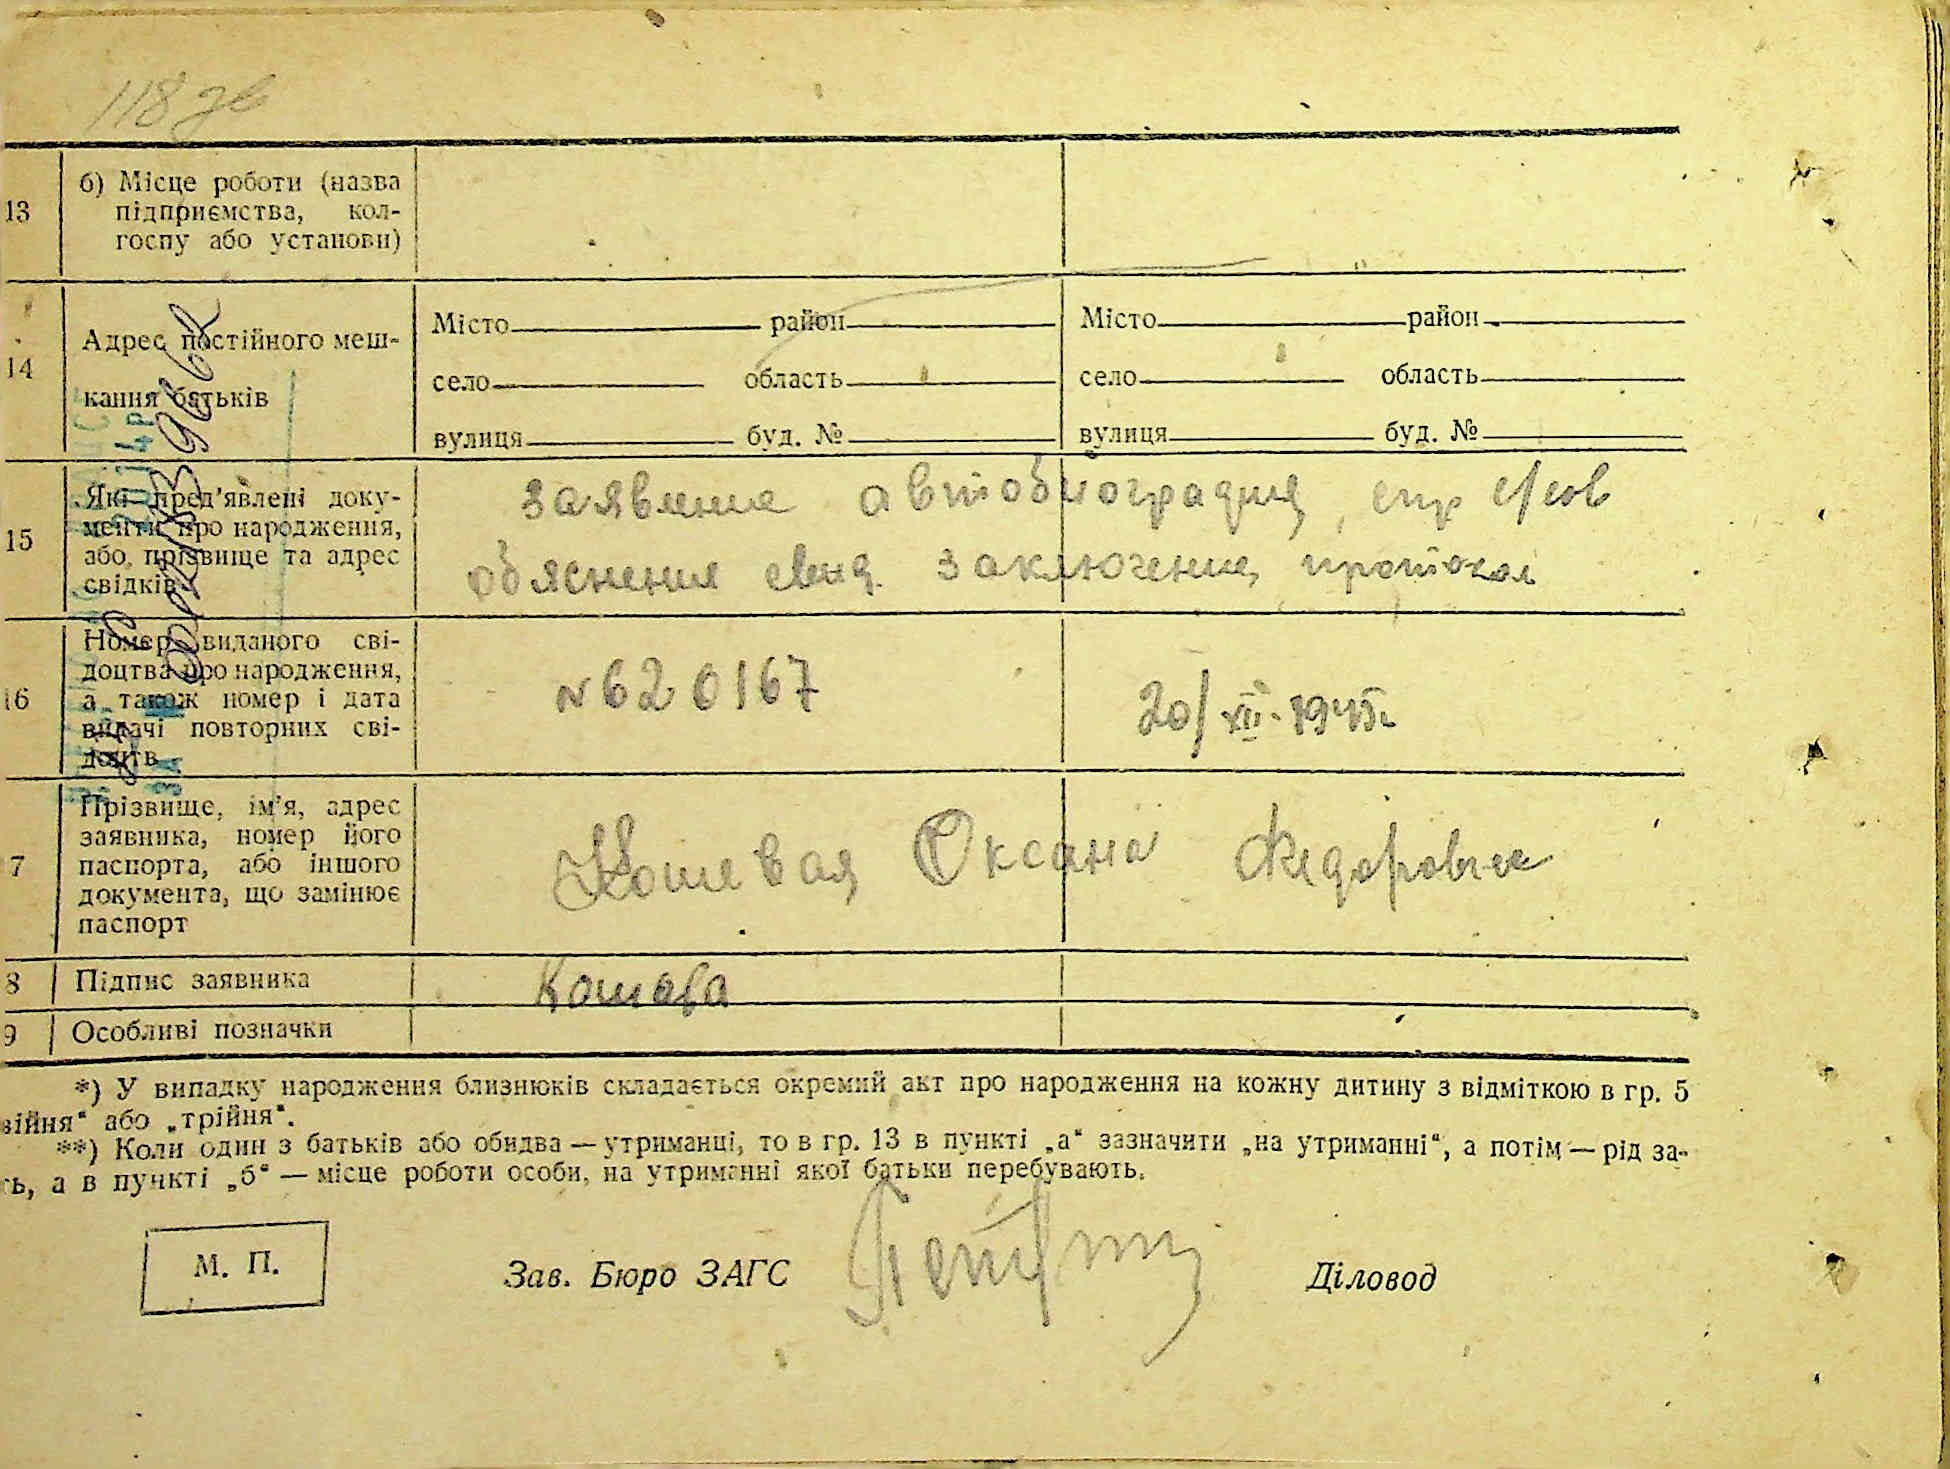 118 зв
13
б) Місце роботи (назва
підприємства, кол-
госпу або установи)
14
Адрес постійного меш-
кання батьків
Місто район
село область
вулиця буд. №
Місто район
село область
вулиця буд. №
15
Які пред'явлені доку-
менти про народження,
або, прізвище та адрес
свідків
заявление автобиография, спр с/сов
обяснения свид. заключение, протокол
16
Номер виданого сві-
доцтва про народження,
а також номер і дата
видачі повторних сві-
доцтв
№620167
20/XII-1945г
7
Прізвище, ім'я, адрес
заявника, номер його
паспорта, або іншого
документа, що замінює
паспорт
Кошевая Оксана Федоровна
8
Підпис заявника
Кошова
9
Особливі позначки
*) У випадку народження близнюків складається окремий акт про народження на кожну дитину з відміткою в гр. 5
війня" або „трійня".
**) Коли один з батьків або обидва — утриманці, то в гр. 13 в пункті „а" зазначити „на утриманні", а потім — рід за-
ть, а в пункті „б" — місце роботи особи, на утриманні якої батьки перебувають.
М. П.
Зав. Бюро ЗАГС
Діловод